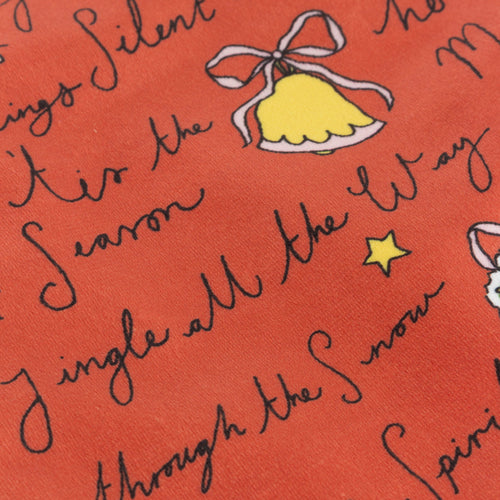 ings Silent
ho
M
'tis the
Season
Jingle all the Way
through the Snow
Spiri